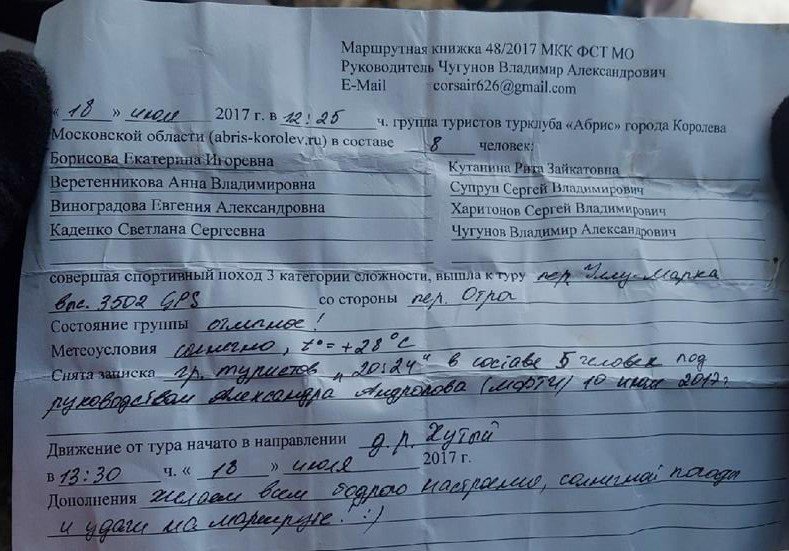 Маршрутная книжка 48/2017 МКК ФСТ МО
Руководитель Чугунов Владимир Александрович
E-Mail corsair626@gmail.com
« 18 » июля 2017 г. в 12:25 ч. группа туристов турклуба «Абрис» города Королева
Московской области (abris-korolev.ru) в составе 8 человек:
Борисова Екатерина Игоревна Кутанина Рита Зайкатовна
Веретенникова Анна Владимировна Супрун Сергей Владимирович
Виноградова Евгения Александровна Харитонов Сергей Владимирович
Каденко Светлана Сергеевна Чугунов Владимир Александрович
совершая спортивный поход 3 категории сложности, вышла к туру пер. Улу-Марка
выс. 3502 GPS со стороны пер. Отра
Состояние группы отличное!
Метеоусловия солнечно, t°= +28°C
Снята записка гр. туристов "20:24" в составе 5 человек под
руководством Александра Андропова (МФТИ) 10 июля 2017г
Движение от тура начато в направлении д.р. Хутый
в 13:30 ч. « 18 » июля 2017 г.
Дополнения желаем всем бодрого настроения, солнечной погоды
и удачи на маршруте! :)